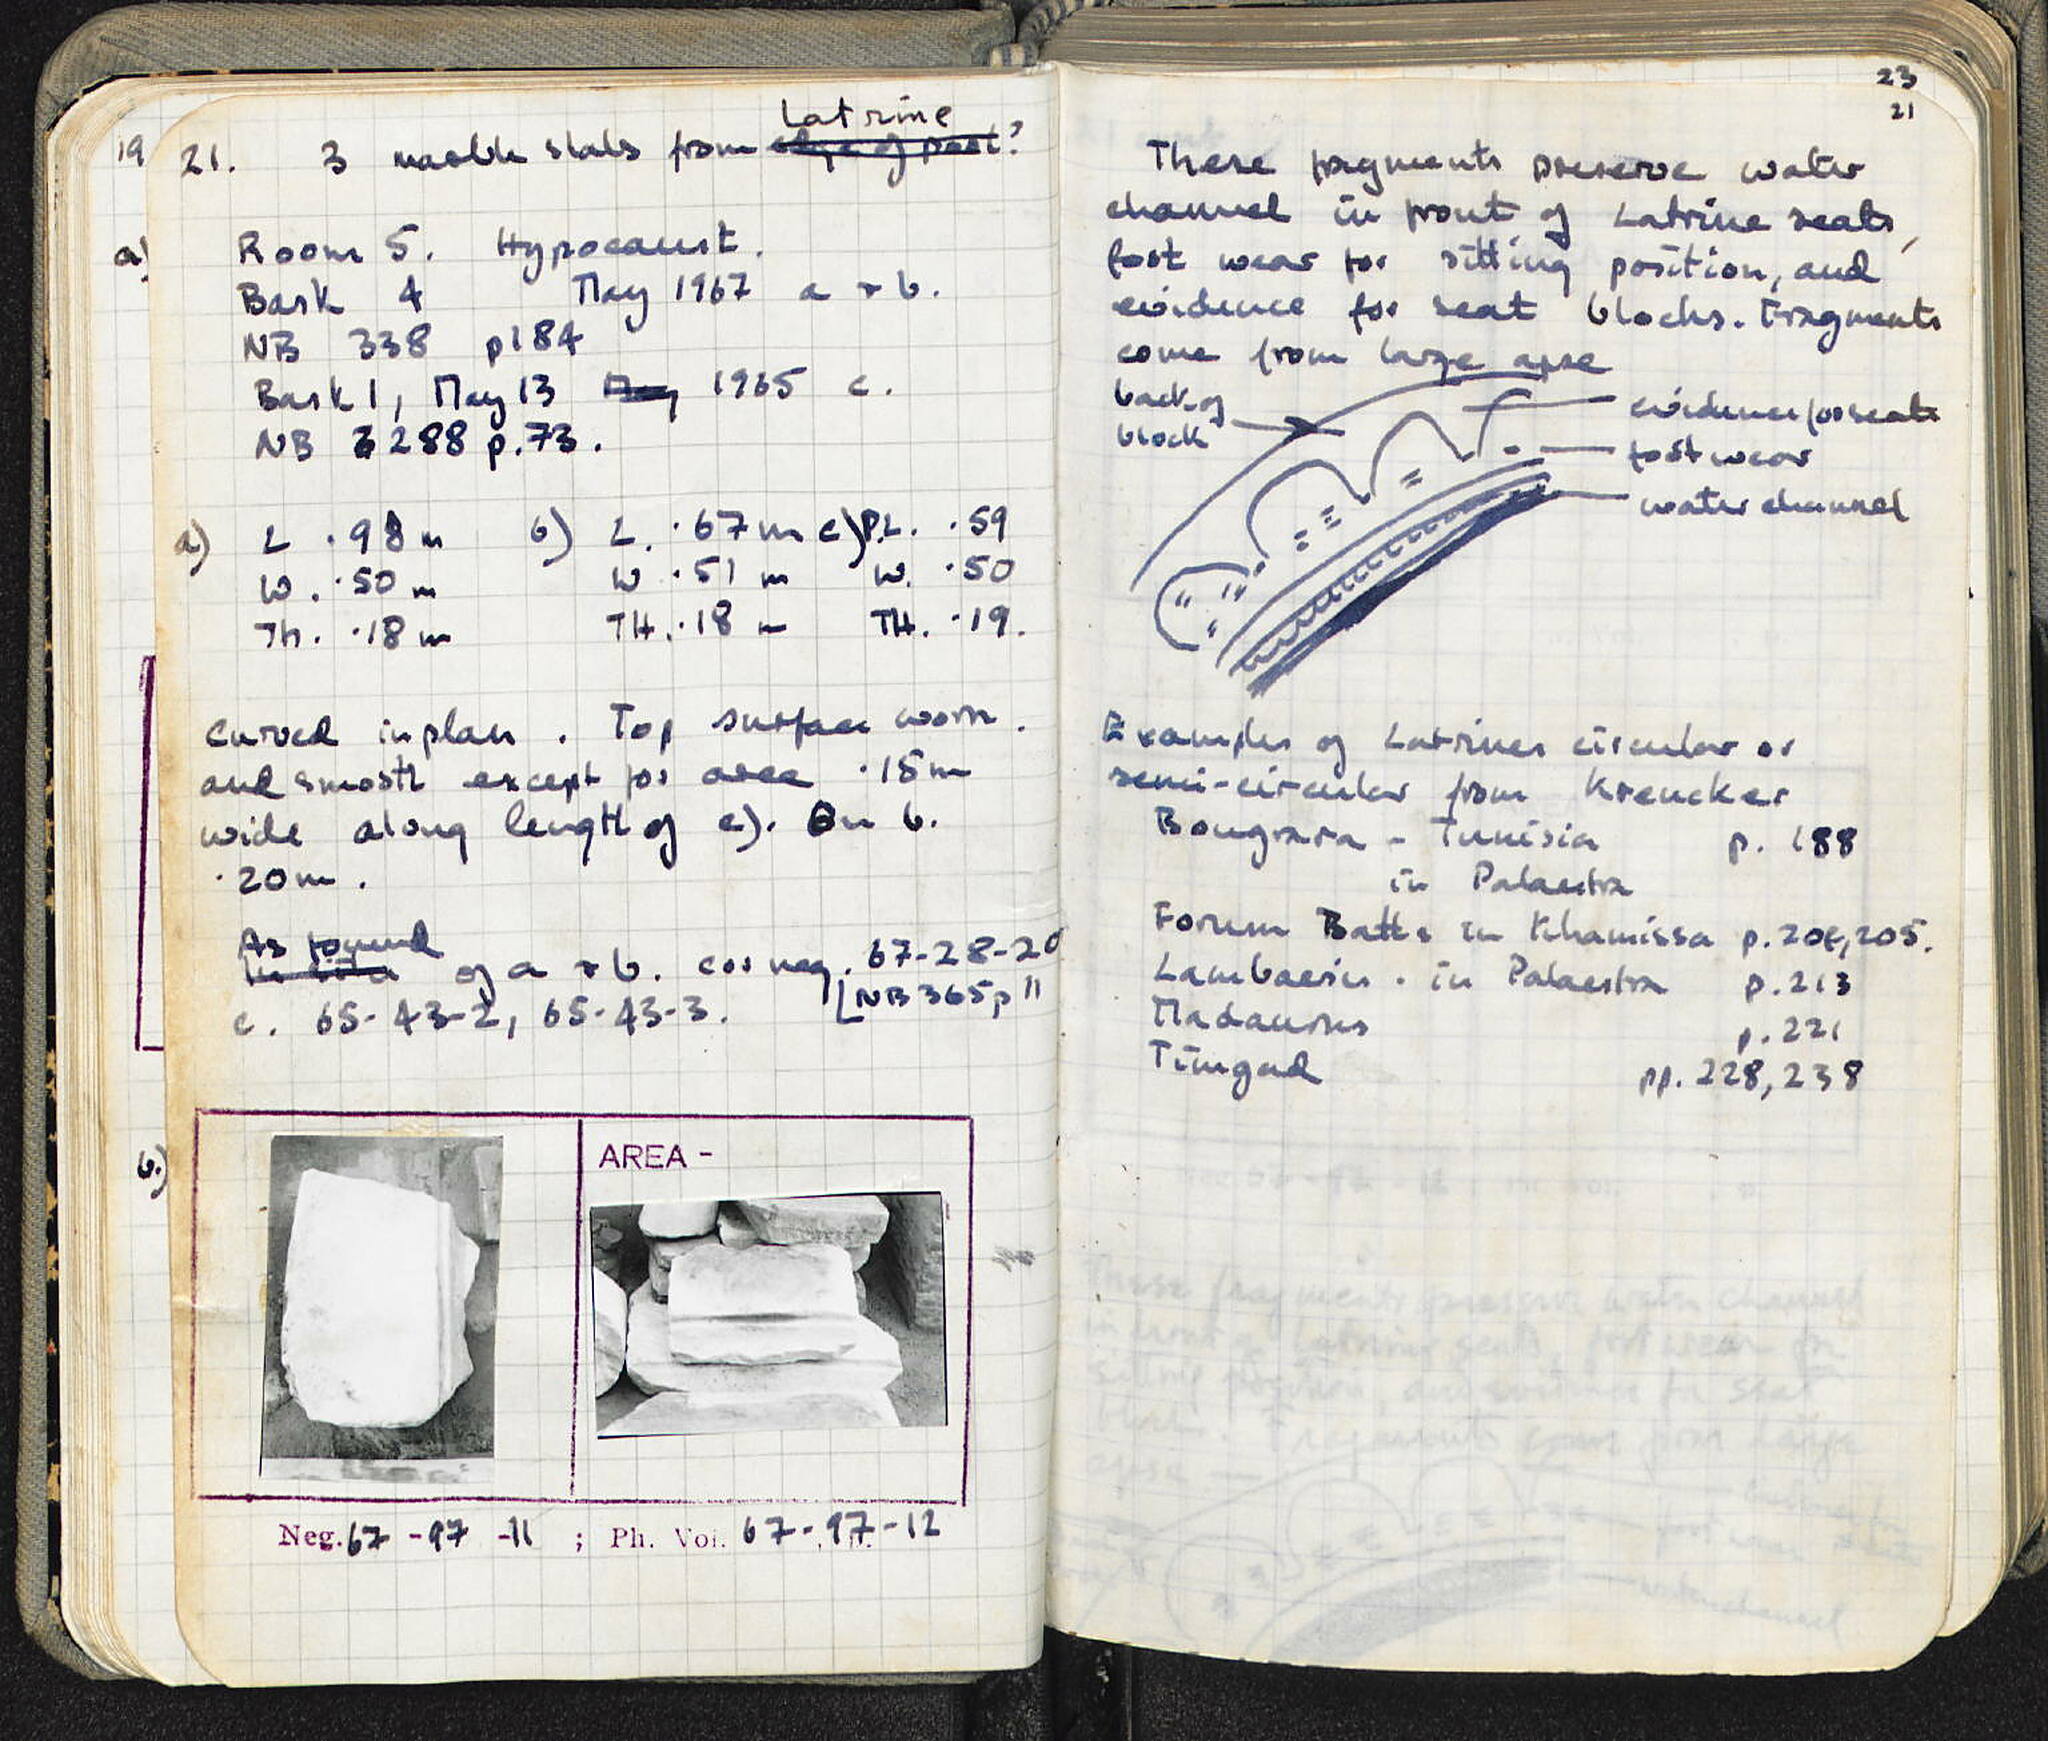 19
a)
b.)
21. 3 marble slabs from Latrine edge of pool?
Room 5. Hypocaust.
Bask 4 May 1967 a + b.
NB 338 p184
Bask 1, May 13 May 1965 c.
NB 3 288 p.73.
a) L .98 m b) L. .67 m c) P.L. .59
W. .50 m W .51 m W. .50
Th. .18 m TH. .18 m TH. .19.
Curved in plan. Top surface worn.
and smooth except for area .15m
wide along length of c). On b.
.20m.
As found
in situ of a + b. cos neg. 67-28-20
[NB 365 p 11
c. 65-43-2, 65-43-3.
AREA -
Neg. 67 -97 -11 ; Ph. Vol. 67-97-12
23
21
These fragments preserve water
channel in front of Latrine seats,
foot wear for sitting position, and
evidence for seat blocks. Fragments
come from large apse
back of
block
evidence for seats
foot wear
water channel
Examples of Latrines circular or
semi-circular from Krencker
Bougrara - Tunisia p. 188
in Palaestra
Forum Baths in Khamissa p. 204, 205.
Lambaesis. in Palaestra p. 213
Madauros p. 221
Timgad pp. 228, 238